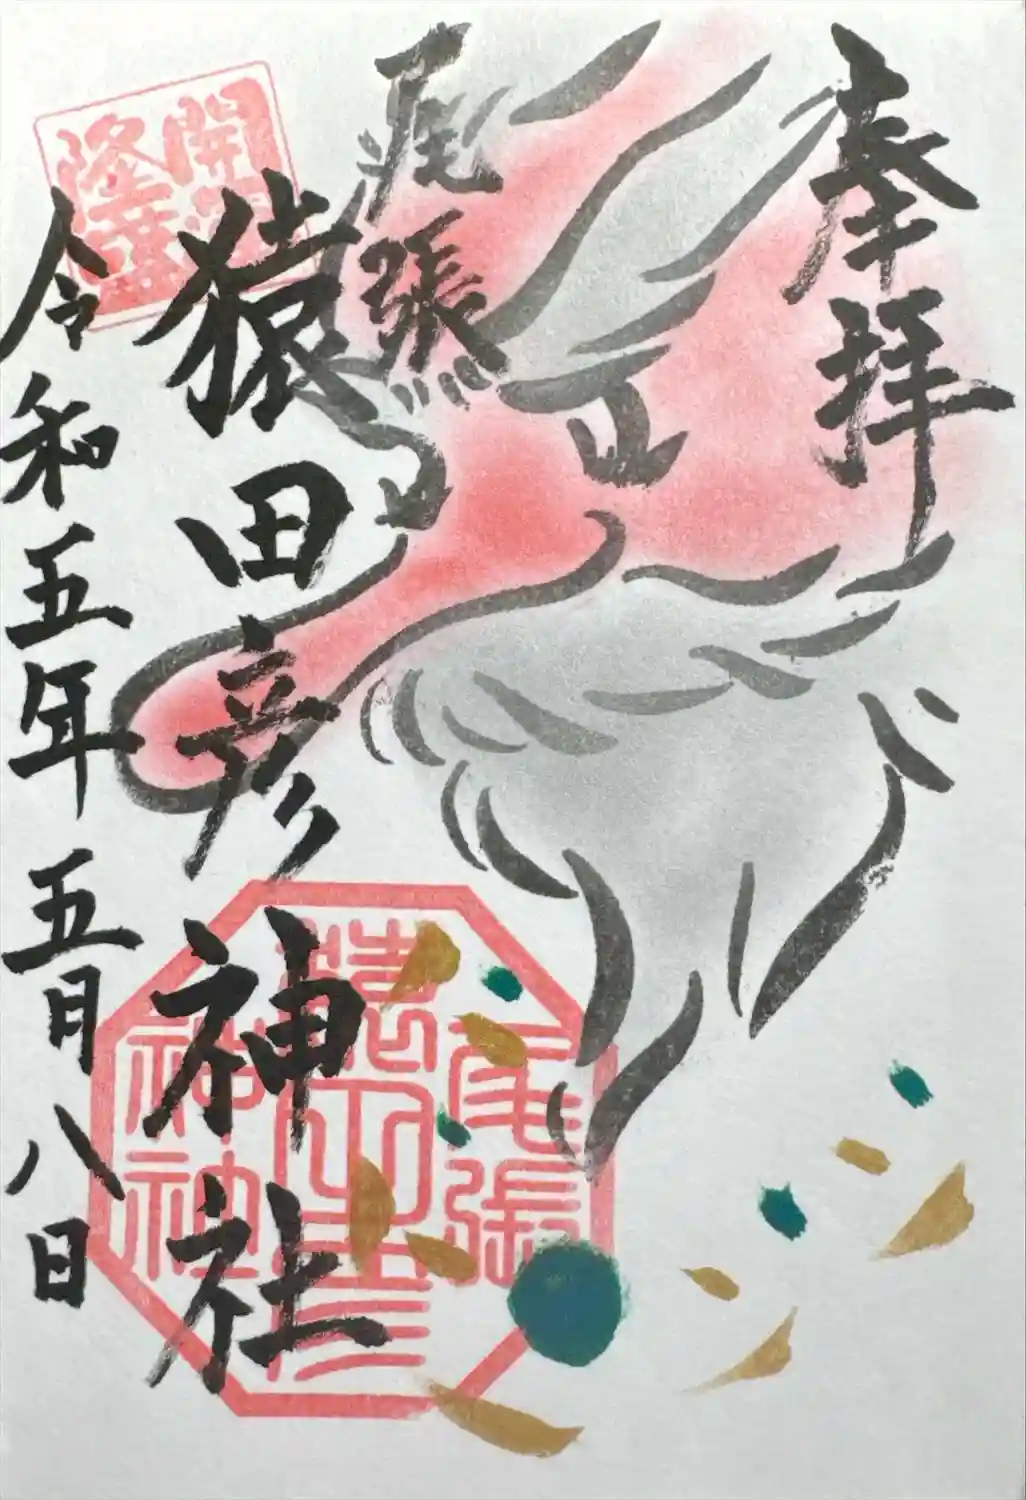 奉拝
尾張
猿田彦神社
令和五年五月八日
開運
隆昌
尾張
猿田彦
神社